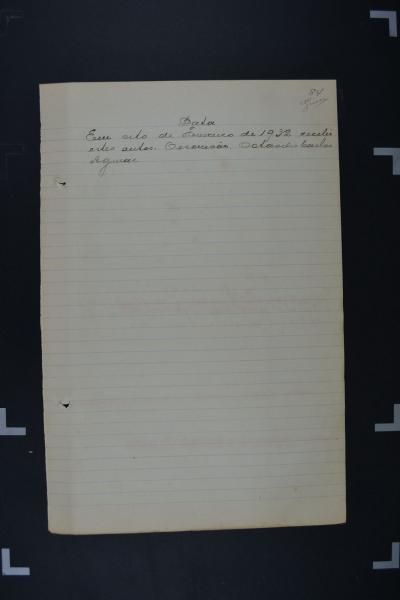 84
Data
Em oito de Fevereiro de 1932 recebi
estes autos. O escrivão, Octavio Carlos
Aguiar